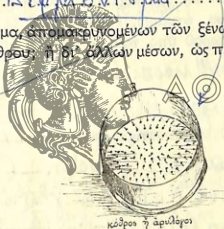 μα, ἀπομακρυνομένων τῶν ξένω
θρου; ἢ δι' ἄλλων μέσων, ὡς π
κόθρος ἢ ἀρυλόγος